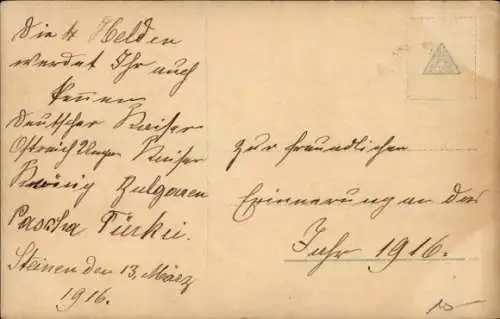 Die 4 Helden
werdet Ihr auch
kennen
Deutscher Kaiser
Östreich Ungar Kaiser
König Bulgaren
Pascha Türkei.
Steinen den 13. März
1916.
zur freundlichen
Erinnerung an das
Jahr 1916.